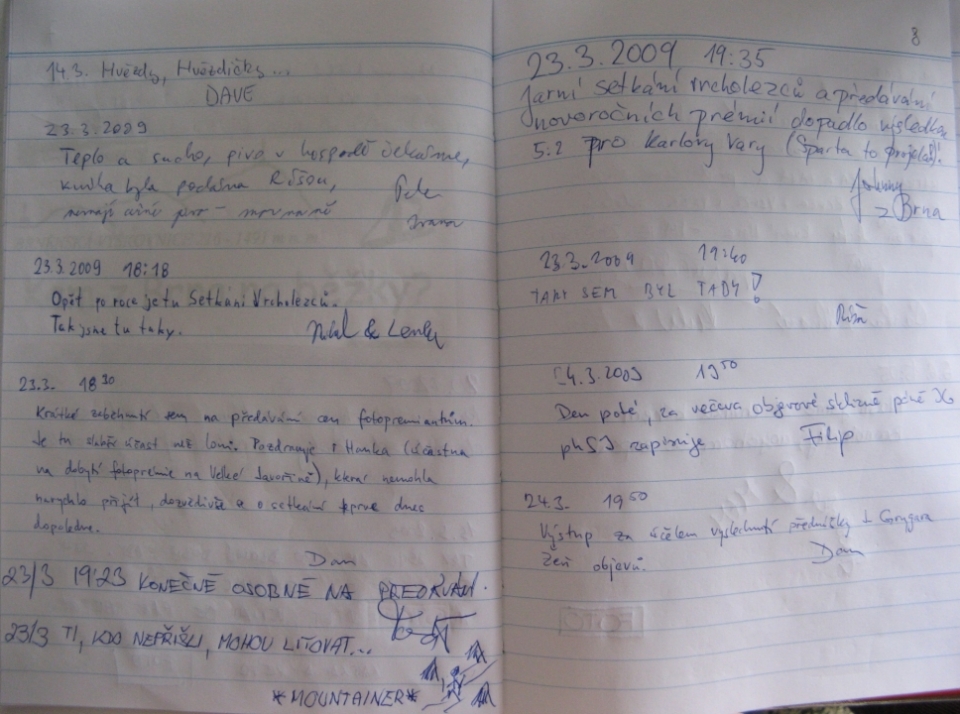 14.3. Hvězdy, Hvězdičky...
DAVE
23.3.2009
Teplo a sucho, pivo v hospodě čekáme,
knížka byla podána Ríšou,
nemají černé pivo -
Ivana
23.3.2009 18:18
Opět po roce je tu Setkání Vrcholezců.
Tak jsme tu taky.
& Lenka
23.3. 18 30
Krátké zaběhnutí sem na předávání cen fotopremiantům.
Je tu slabší účast než loni. Pozdravuje i Hanka (účastna
na dobytí fotoprémie na Velké Javořině), která nemohla
narychlo přijít, dozvěděvše se o setkání teprve dnes
dopoledne.
Dan
23/3 19:23 KONEČNĚ OSOBNĚ NA PŘEDÁVÁNÍ.
23/3 TI, KDO NEPŘIŠLI, MOHOU LITOVAT...
*MOUNTAINER*
8
23.3.2009 19:35
Jarní setkání vrcholezců a předávání
novoročních prémií dopadlo výsledkem
5:2 pro Karlovy Vary (Sparta to projela)!
Johnny
z Brna
23.3.2009 19:40
TAKY SEM BYL TADY!
Ríša
24.3.2009 19 50
Den poté, za večera objevové sklizně
zapisuje Filip
24.3. 19 50
Výstup za účelem vyslechnutí přednášky J. Grygara
Žeň objevů.
Dan